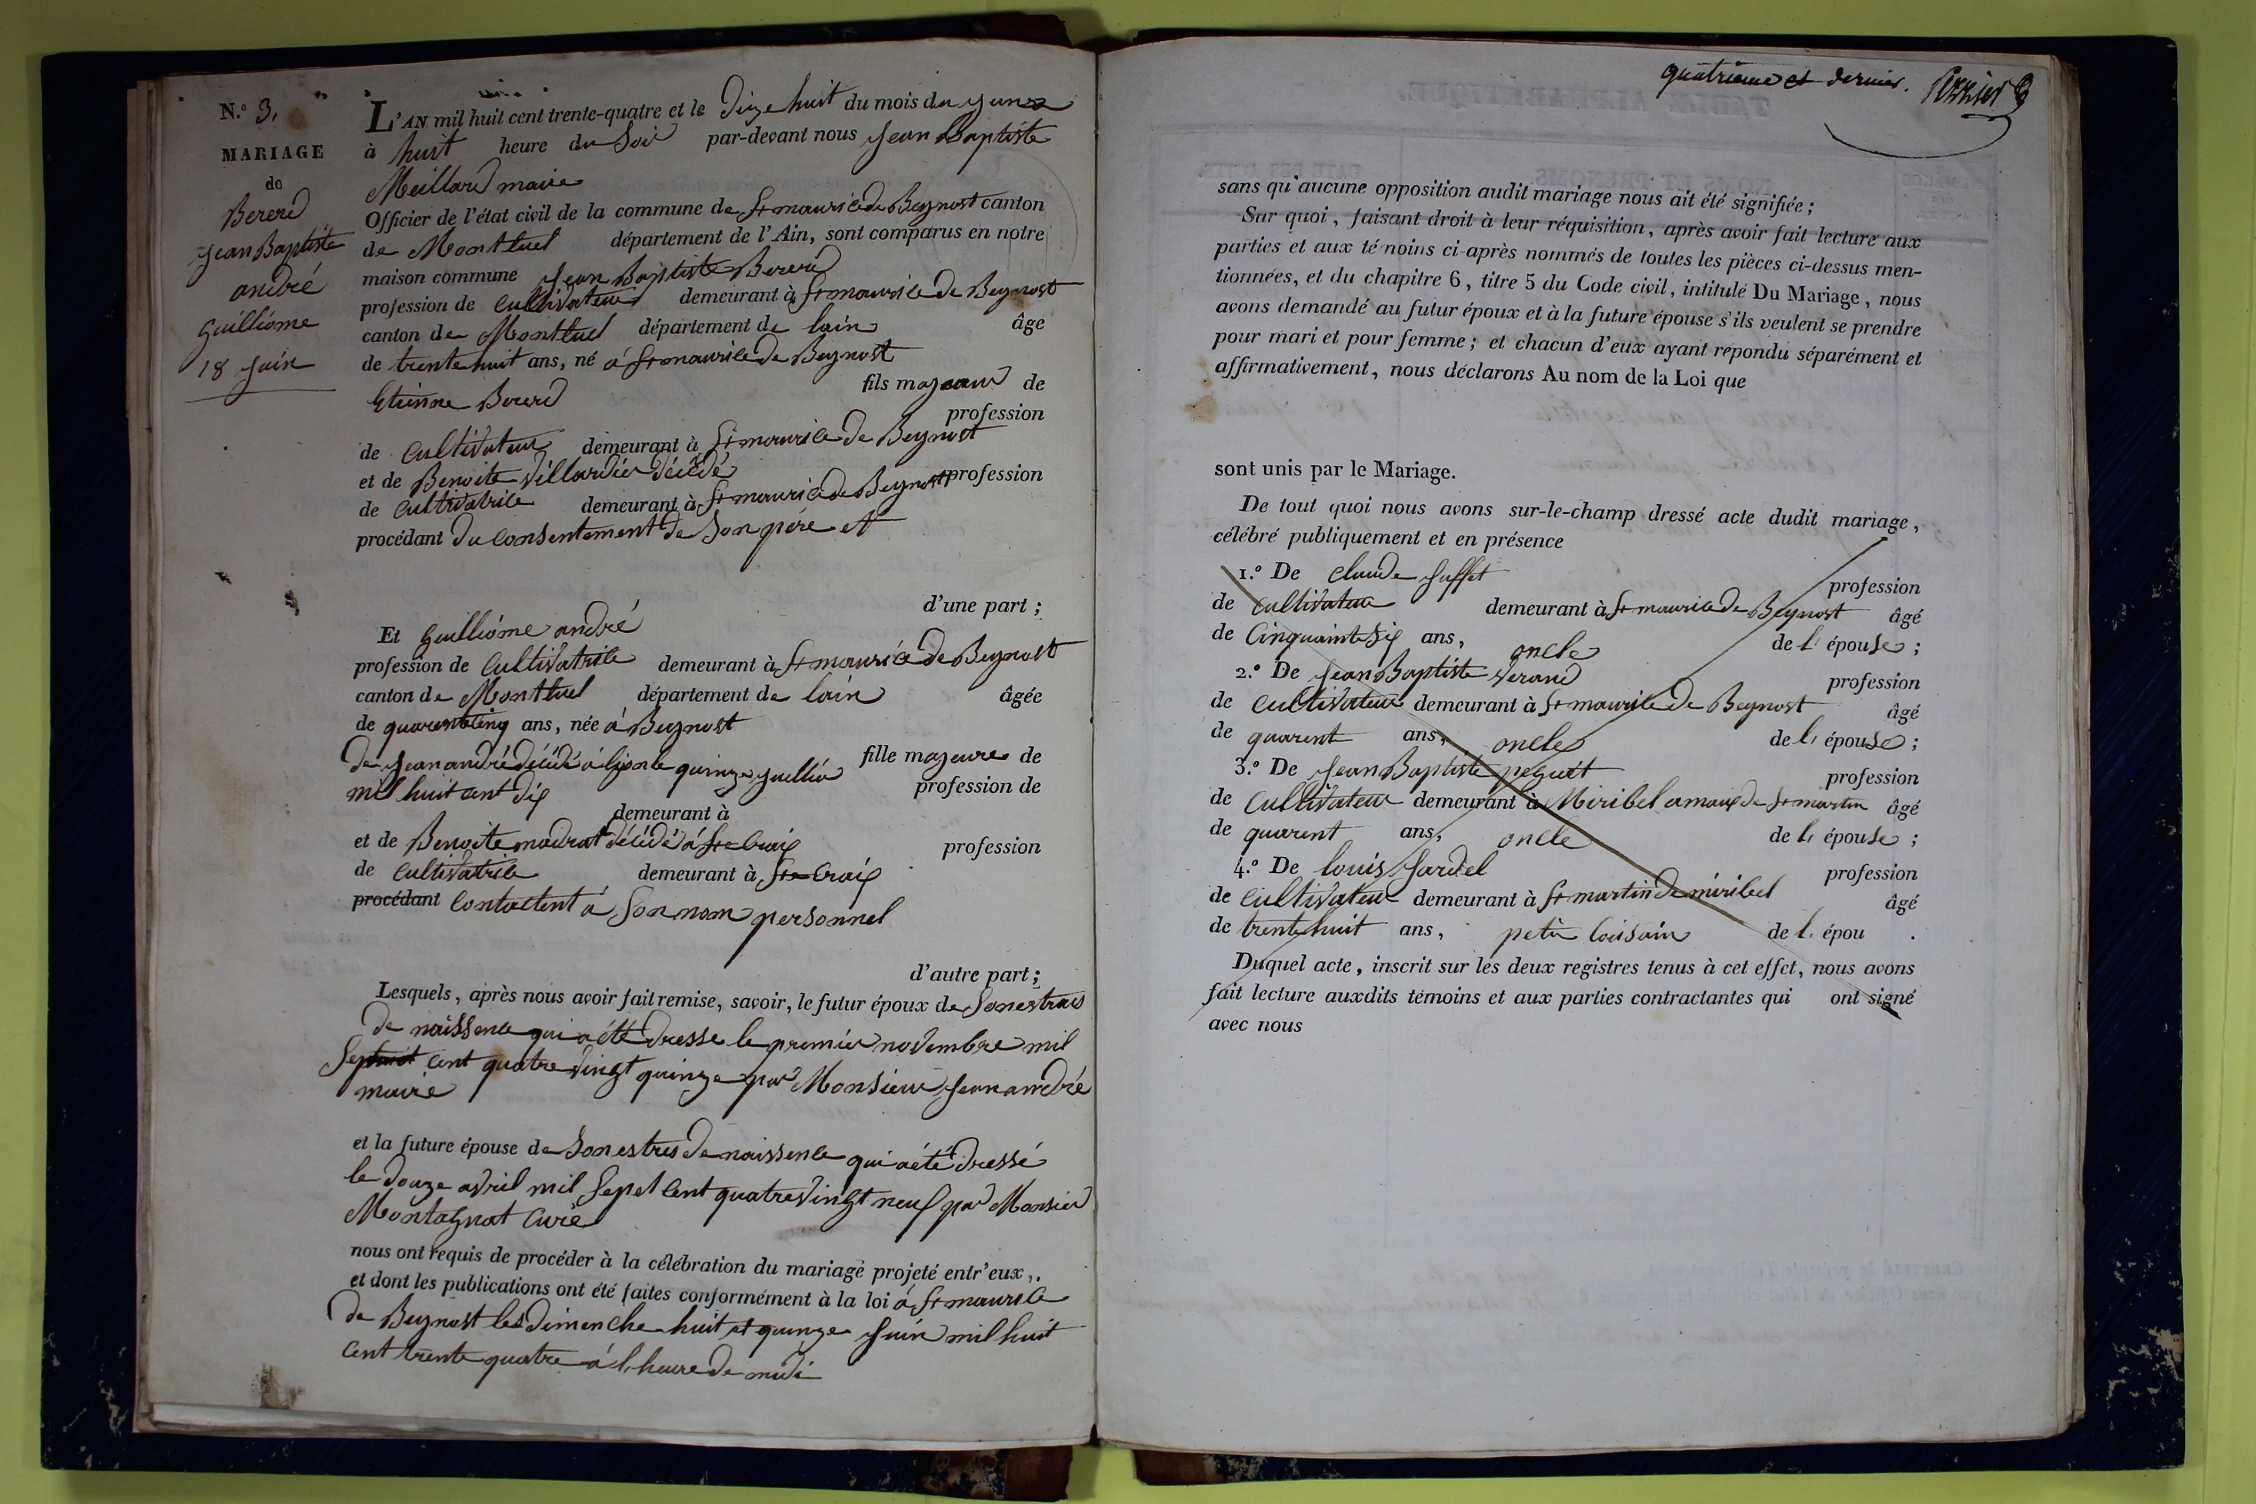 N.o 3.
MARIAGE
de
Bererd
Jean Baptiste
andré
guilliome
18 juin
L'AN mil huit cent trente-quatre et le Dize huit du mois du
à huit heure du Soir par-devant nous Jean Baptiste
Meillard maire
Officier de l'état civil de la commune de St mauricedeBeynost canton
de Montluel département de l'Ain, sont comparus en notre
maison commune Jean Baptiste Bererd
profession de cultivateur demeurant à St maurice de Beynost
canton de Montluel département de lain âge
de trente huit ans, né à St maurice de Beynost
fils majeur de
Etienne Bererd
profession
de cultivateur demeurant à St maurice de Beynost
et de Benoite Villardier décédé profession
de cultivatrice demeurant à St maurice de Beynost
procédant du consentement de Son père et
d'une part ;
Et guilliome andré
profession de cultivatrice demeurant à St maurice de Beynost
canton de Montluel département de lain âgée
de quarentcinq ans, née à Beynost
fille majeure de
de Jean andré décédé à lion le quinze juellié
mil huit cent dix profession de
demeurant à
et de Benoite madrat décédé à Ste Croix profession
de cultivatrice demeurant à Ste Croix
procédant contactent à Son nom personnel
d'autre part ;
Lesquels, après nous avoir fait remise, savoir, le futur époux de Son estrais
de naissence qui a été dresse le premier novembre mil
Sept cent quatre vingt quinze par Monsieur Jean andré
maire
et la future épouse de Son estres de naissence qui a été dressé
le douze avril mil Sepet cent quatre vingt neuf par Monsier
Montagnat curé
nous ont requis de procéder à la célébration du mariage projeté entr'eux,.
et dont les publications ont été faites conformément à la loi à St maurice
de Beynost les dimenche huit et quinze juin mil huit
cent trente quatre à l'heure de midi
quatrieme et dernier.
sans qu'aucune opposition audit mariage nous ait été signifiée ;
Sur quoi, faisant droit à leur réquisition, après avoir fait lecture aux
parties et aux témoins ci-après nommés de toutes les pièces ci-dessus men-
tionnées, et du chapitre 6, titre 5 du Code civil, intitulé Du Mariage, nous
avons demandé au futur époux et à la future épouse s'ils veulent se prendre
pour mari et pour femme ; et chacun d'eux ayant répondu séparément et
affirmativement, nous déclarons Au nom de la Loi que
sont unis par le Mariage.
De tout quoi nous avons sur-le-champ dressé acte dudit mariage,
célébré publiquement et en présence
1.o De claude juffet profession
de cultivateur demeurant à St maurice de Beynost âgé
de Cinquaintesix ans, oncle de l' épouse ;
2.o De Jean Baptiste Verand profession
de cultivateur demeurant à St maurice de Beynost âgé
de quarent ans, oncle de l' épouse ;
3.o De Jean Baptiste peguet profession
de cultivateur demeurant à Miribel amaix de St martin âgé
de quarent ans, oncle de l' épouse ;
4.o De louis Sardel profession
de cultivateur demeurant à St martin de miribel âgé
de trente huit ans, petit Coisain de l. épou .
Duquel acte, inscrit sur les deux registres tenus à cet effet, nous avons
fait lecture auxdits témoins et aux parties contractantes qui ont signé
avec nous